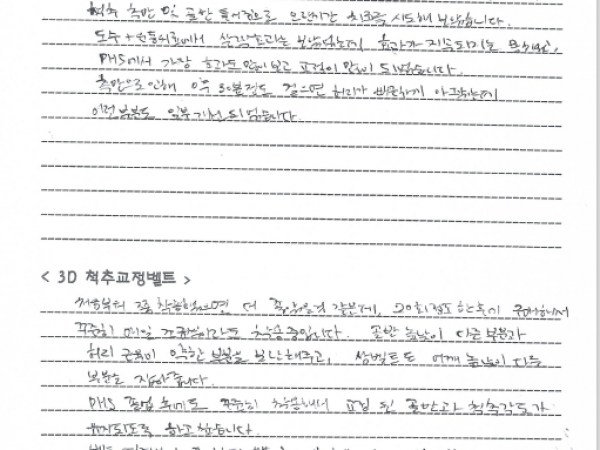 척추 측만 및 골반 틀어짐으로 오랜시간 치료를 시도해 보았습니다.
도수+운동치료에서 살짝 효과는 보았었는데 효과가 지속되지는 못했고,
PHS에서 가장 효과도 많이 보고 교정이 많이 되었습니다.
측만으로 인해 약 30분정도 걸으면 허리가 뻐근하게 아팠는데
이런 부분도 일부 개선되었습니다.
< 3D 척추교정벨트 >
처음부터 쭉 착용했으면 더 좋았을것 같은데, 20회정도 한 후에 구매해서
꾸준히 매일 착용중입니다. 골반 높낮이 다른 부분과
허리 근육이 약한 부분을 보완해주고, 상벨트도 어깨 높낮이 다른
부분을 잡아줍니다.
PHS 졸업 후에도 꾸준히 착용해서 교정 된 골반과 척추각도가
유지되도록 하고 싶습니다.